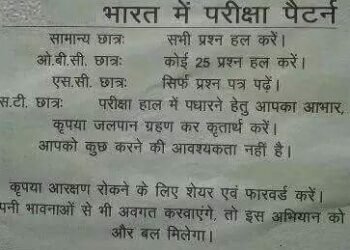 भारत में परीक्षा पैटर्न
सामान्य छात्रः सभी प्रश्न हल करें।
ओ.बी.सी. छात्रः कोई 25 प्रश्न हल करें।
एस.सी. छात्रः सिर्फ प्रश्न पत्र पढ़ें।
स.टी. छात्रः परीक्षा हाल में पधारने हेतु आपका आभार,..
कृपया जलपान ग्रहण कर कृतार्थ करें।
आपको कुछ करने की आवश्यकता नहीं है।
कृपया आरक्षण रोकने के लिए शेयर एवं फारवर्ड करें।
पनी भावनाओं से भी अवगत करवाएंगे, तो इस अभियान को
और बल मिलेगा।